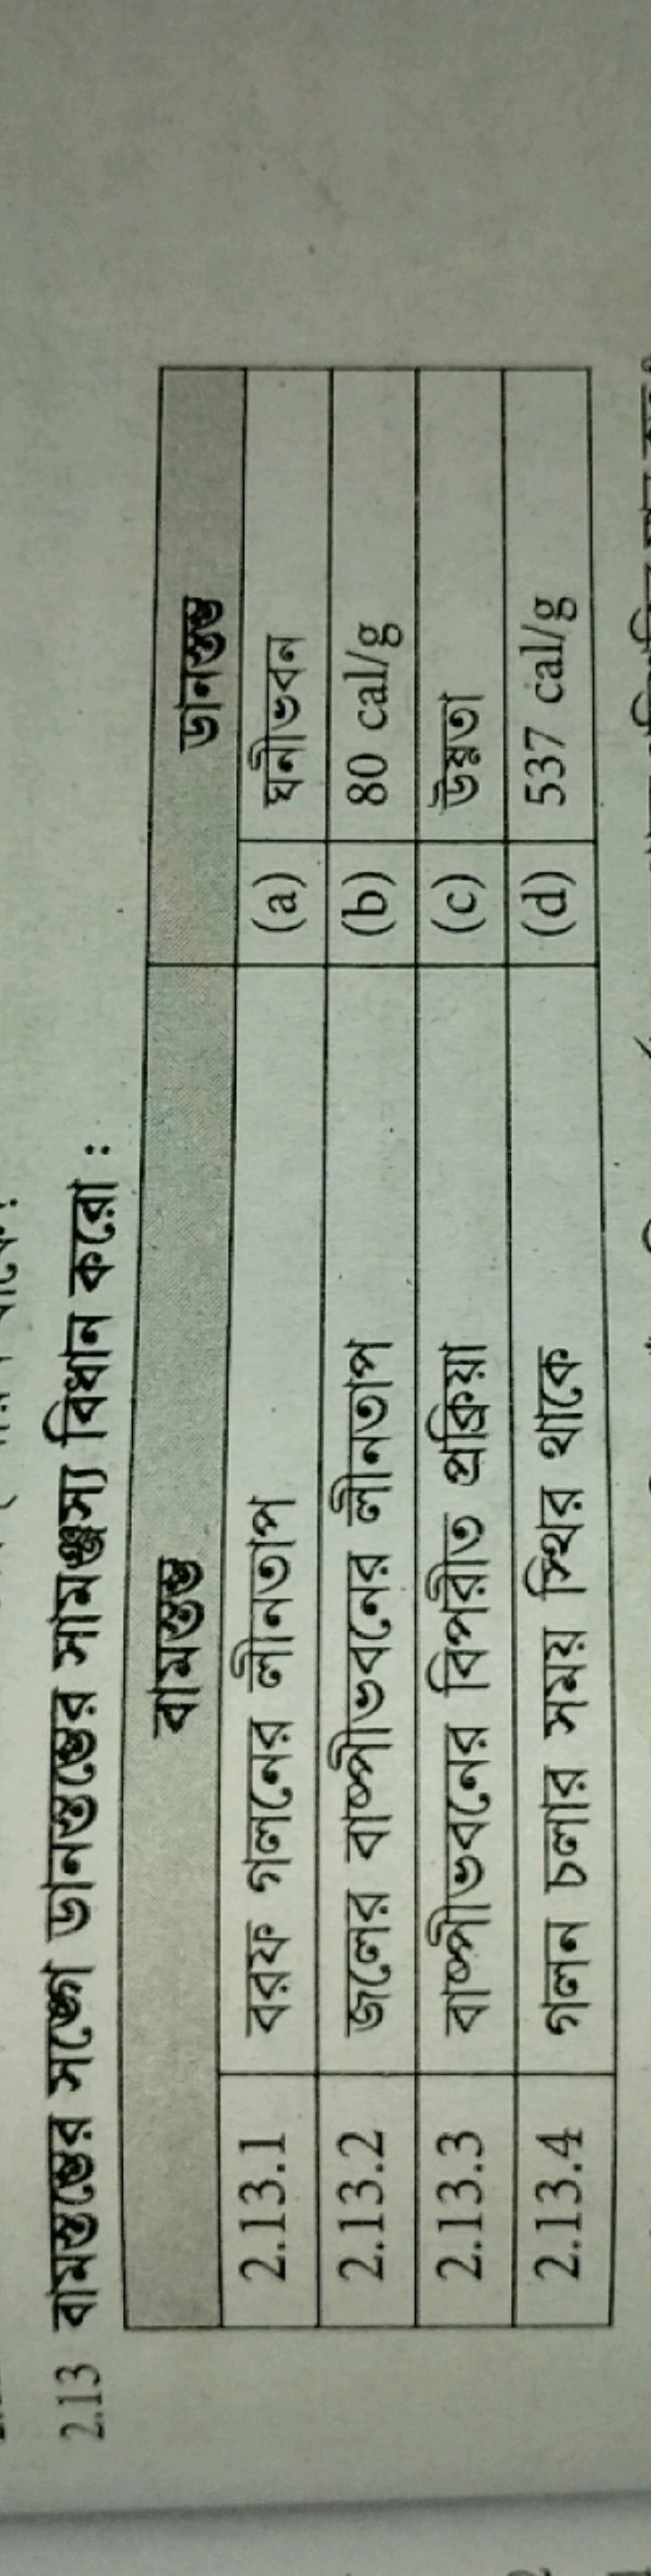 2.13 বামস্তম্ভের সঙ্গে ডানস্তম্ভের সামঞ্জস্য বিধান করো :
বামস্তম্ভ ডানস্তম্ভ
2.13.1 বরফ গলনের লীনতাপ (a) ঘনীভবন
2.13.2 জলের বাষ্পীভবনের লীনতাপ (b) 80 cal/g
2.13.3 বাষ্পীভবনের বিপরীত প্রক্রিয়া (c) উষ্ণতা
2.13.4 গলন চলার সময় স্থির থাকে (d) 537 cal/g